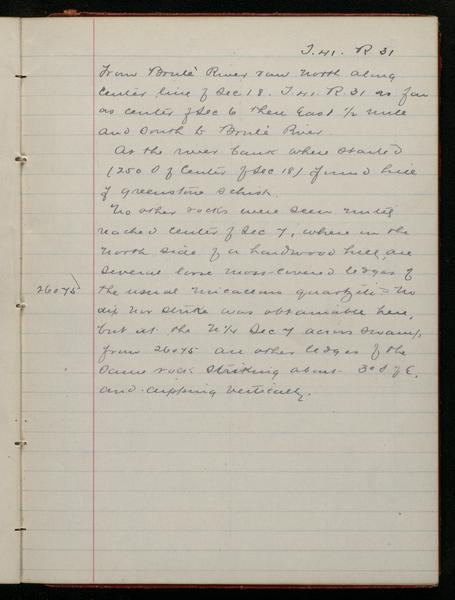 T. 41. R 31
From Brulé River ran north along
Center line of Sec 18. T. 41. R. 31 as far
as center of Sec 6 then East 1/2 mile
and South to Brulé River.
At the river bank where started
(250 S of Center of Sec 18) found
of Greenstone Schist.
No other rocks were seen until
reached center of Sec 7, where on the
North side of a hardwood hill, are
several loose moss-covered ledges of
26045) the usual micaceous quartzite. No
dip nor strike was obtainable here,
but at the N 1/4 Sec 7 across swamp,
from 26045 are other ledges of the
same rock striking about 30 S of E.
and dipping vertically.